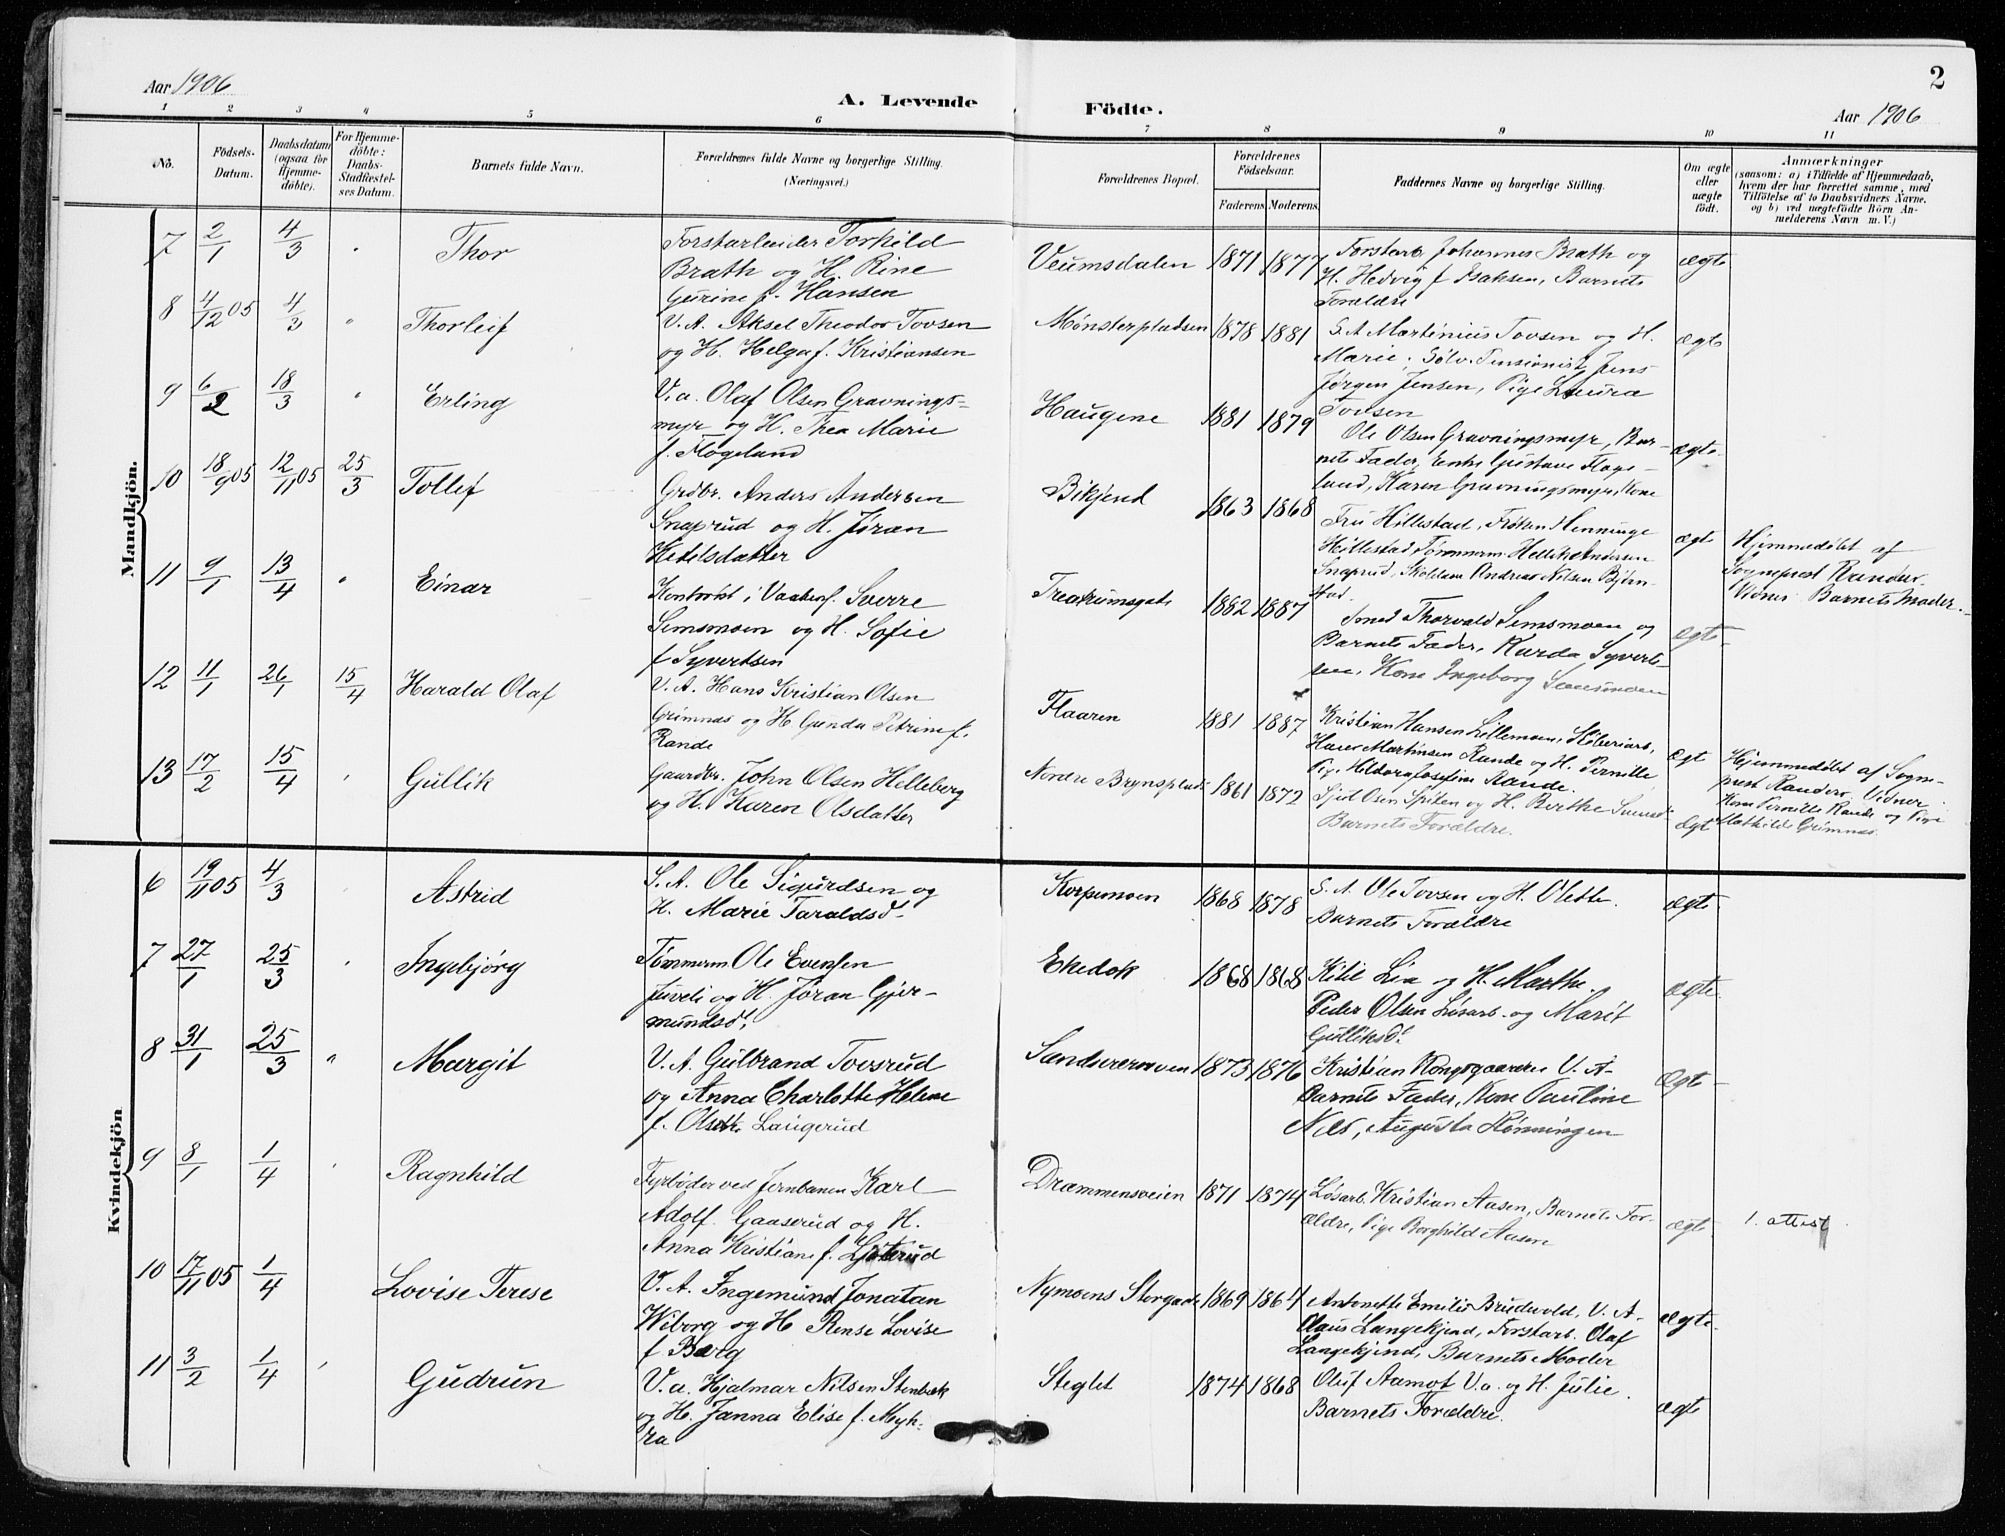 Aar 1906
A. Levende Födte.
2
Aar 1906
1 2 3 4 5 6 7 8 9 10 11
No.
Födsels-Datum.
Daabsdatum (ogsaa for Hjemme-döbte).
For Hjemme-döbte: Daabs-Stadfæstel-ses Datum.
Barnets fulde Navn.
Forældrenes fulde Navne og borgerlige Stilling. (Næringsvei.)
Forældrenes Bopæl.
Forældrenes Födselsaar.
Faderens. Moderens.
Faddernes Navne og borgerlige Stilling.
Om ægte eller uægte födt.
Anmærkninger (saasom: a) i Tilfælde af Hjemmedaab, hvem der har forrettet samme, med Tilföielse af to Daabsvidners Navne. og b) ved uægtefödte Börn An-melderens Navn m. V.)
Mandkjön.
7 2/1 4/3 " Thor
Forstarbeider Torkild
Brath og H. Rine
Gurine f. Hansen
Veumsdalen 1871 1877
Forstarb. Johannes Brath og
H. Hedvig f. Isaksen, Barnets
Forældre
ægte
8 4/12 05 4/3 " Thorleif
V. A. Aksel Theodor Tovsen
og H. Helga f. Kristiansen
Mønsterpladsen 1878 1881
S. A. Martinius Tovsen og H.
Marie, Sølv. Pensionist Jens
Jørgen Jensen, Pige Laura
Tovsen
ægte
9 6/2 18/3 " Erling
V. a. Olaf Olsen Gravnings-
myr og H. Thea Marie
f. Flogeland
Haugene 1881 1879
Ole Olsen Gravningsmyr, Bar-
nets Fader, Enke Gustava Floge-
land, Karen Gravningsmyr, Kone
ægte.
10 18/9 05 12/11 05 25/3 Tollef
Grdbr. Anders Andersen
Snaprud og H. Jøran
Ketilsdatter
Bikjend 1863 1868
Fru Hillestad, Frøken Henninge
Hillestad, Tømmerm. Hellik Andersen
Snaprud, Andreas Nilsen Bjørn-
stad.
ægte
Hjemmedøbt af
Sogneprest Randers.
Vidner: Barnets Moder.
11 9/1 13/4 " Einar
Kontorist i Vaabenf. Sverre
Simsmoen og H. Sofie
f. Syvertsen
1882 1887
Smed Thorvald Simsmoen og
Barnets Fader, Karda Syvert-
sen, Kone Ingeborg Simsmoen
ægte
12 11/1 26/1 15/4 Harald Olaf
V. A. Hans Kristian Olsen
Grimnæs og H. Gunda Petrine f.
Rande
Flaaren 1881 1887
Kristian Hansen Lillemoen,
Hans Martinsen Rande og H. Pernille,
Pige Hildora Josefine Rande.
ægte
Hjemmedøbt af Sogne-
prest Randers. Vidner
Kone Pernille Rande og Pige
Mathilde Grimnæs.
13 17/2 15/4 " Gullik
Gaardbr. John Olsen Helleberg
og H. Karen Olsdatter
Nordre Brynsplads 1861 1872
Sjul Olsen Spiten og H. Berthe
Barnets Forældre.
ægte
Kvindekjön
6 19/11 05 4/3 " Astrid
S. A. Ole Sigurdsen og
H. Marie Taraldsd.
Korpemoen 1868 1878
S. A. Ole Tovsen og H. Olette.
Barnets Forældre
ægte
7 27/1 25/3 " Ingebjørg
Tømmerm. Ole Evensen
Juveli og H. Jøran Gjer-
mundsd.
Ekedok 1868 1868
Kitil Lia og H. Marthe.
Peder Olsen Løsarb. og Marit
Gulliksd.
ægte.
8 31/1 25/3 " Margit
V. A. Gulbrand Tovsrud
og Anna Charlotte Helene
f. Olsdtr. Langerud
Sandsværmoen 1873 1876
Kristian Kongsgaarden V. A.
Barnets Fader, Kone Pauline
Næs, Augusta Rønningen
Ægte
9 8/1 1/4 " Ragnhild
Fyrbøder ved Jernbanen Karl
Adolf Gaaserud og H.
Anna Kristiane f.
Drammensveien 1871 1874
Løsarb. Kristian Aasen, Barnets For-
ældre, Pige Borghild Aasen
ægte
1. attest
10 17/11 05 1/4 Lovise Terese
V. A. Ingemund Jonatan
Wiborg og H. Rense Lovise
f. Berg
Nymoens Storgade 1869 1864
Antonette Emilie Brudevold, V. A.
Claus Langekjend, Forstarb. Olaf
Langekjend, Barnets Moder
ægte.
11 3/2 1/4 " Gudrun
V. a. Hjalmar Nilsen Stenbæk
og H. Janna Elise f. Myh-
ra
Steglet 1874 1868
Oluf Aamot V. a. og H. Julie.
Barnets Forældre.
ægte